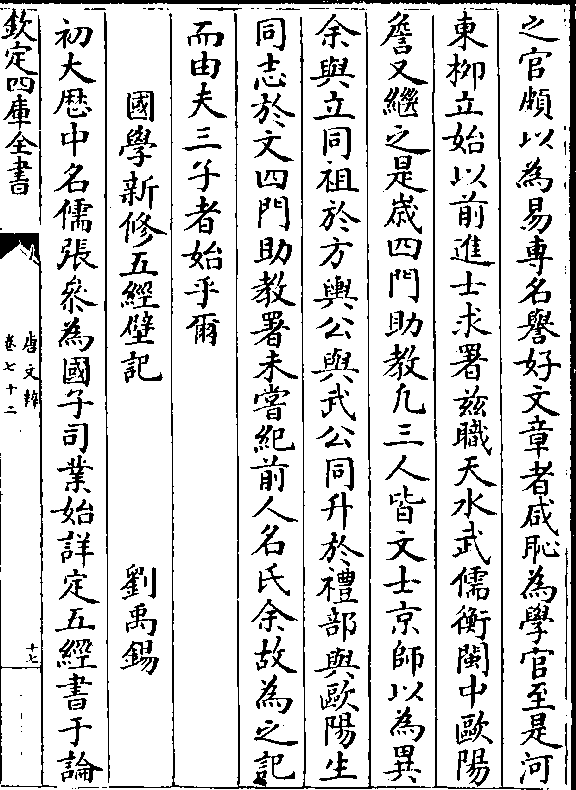 之官頗以為易專名譽好文章者咸恥為學官至是河
東柳立始以前進士求署兹職天水武儒衡閩中歐陽
詹又繼之是歲四門助教凡三人皆文士京師以為異
余與立同祖於方輿公與武公同升於禮部與歐陽生
同志於文四門助教署未嘗紀前人名氏余故為之記
而由夫三子者始乎爾
國學新修五經壁記
劉禹錫
初大厯中名儒張參為國子司業始詳定五經書于論
欽定四庫全書
唐文粹
卷七十二
十七